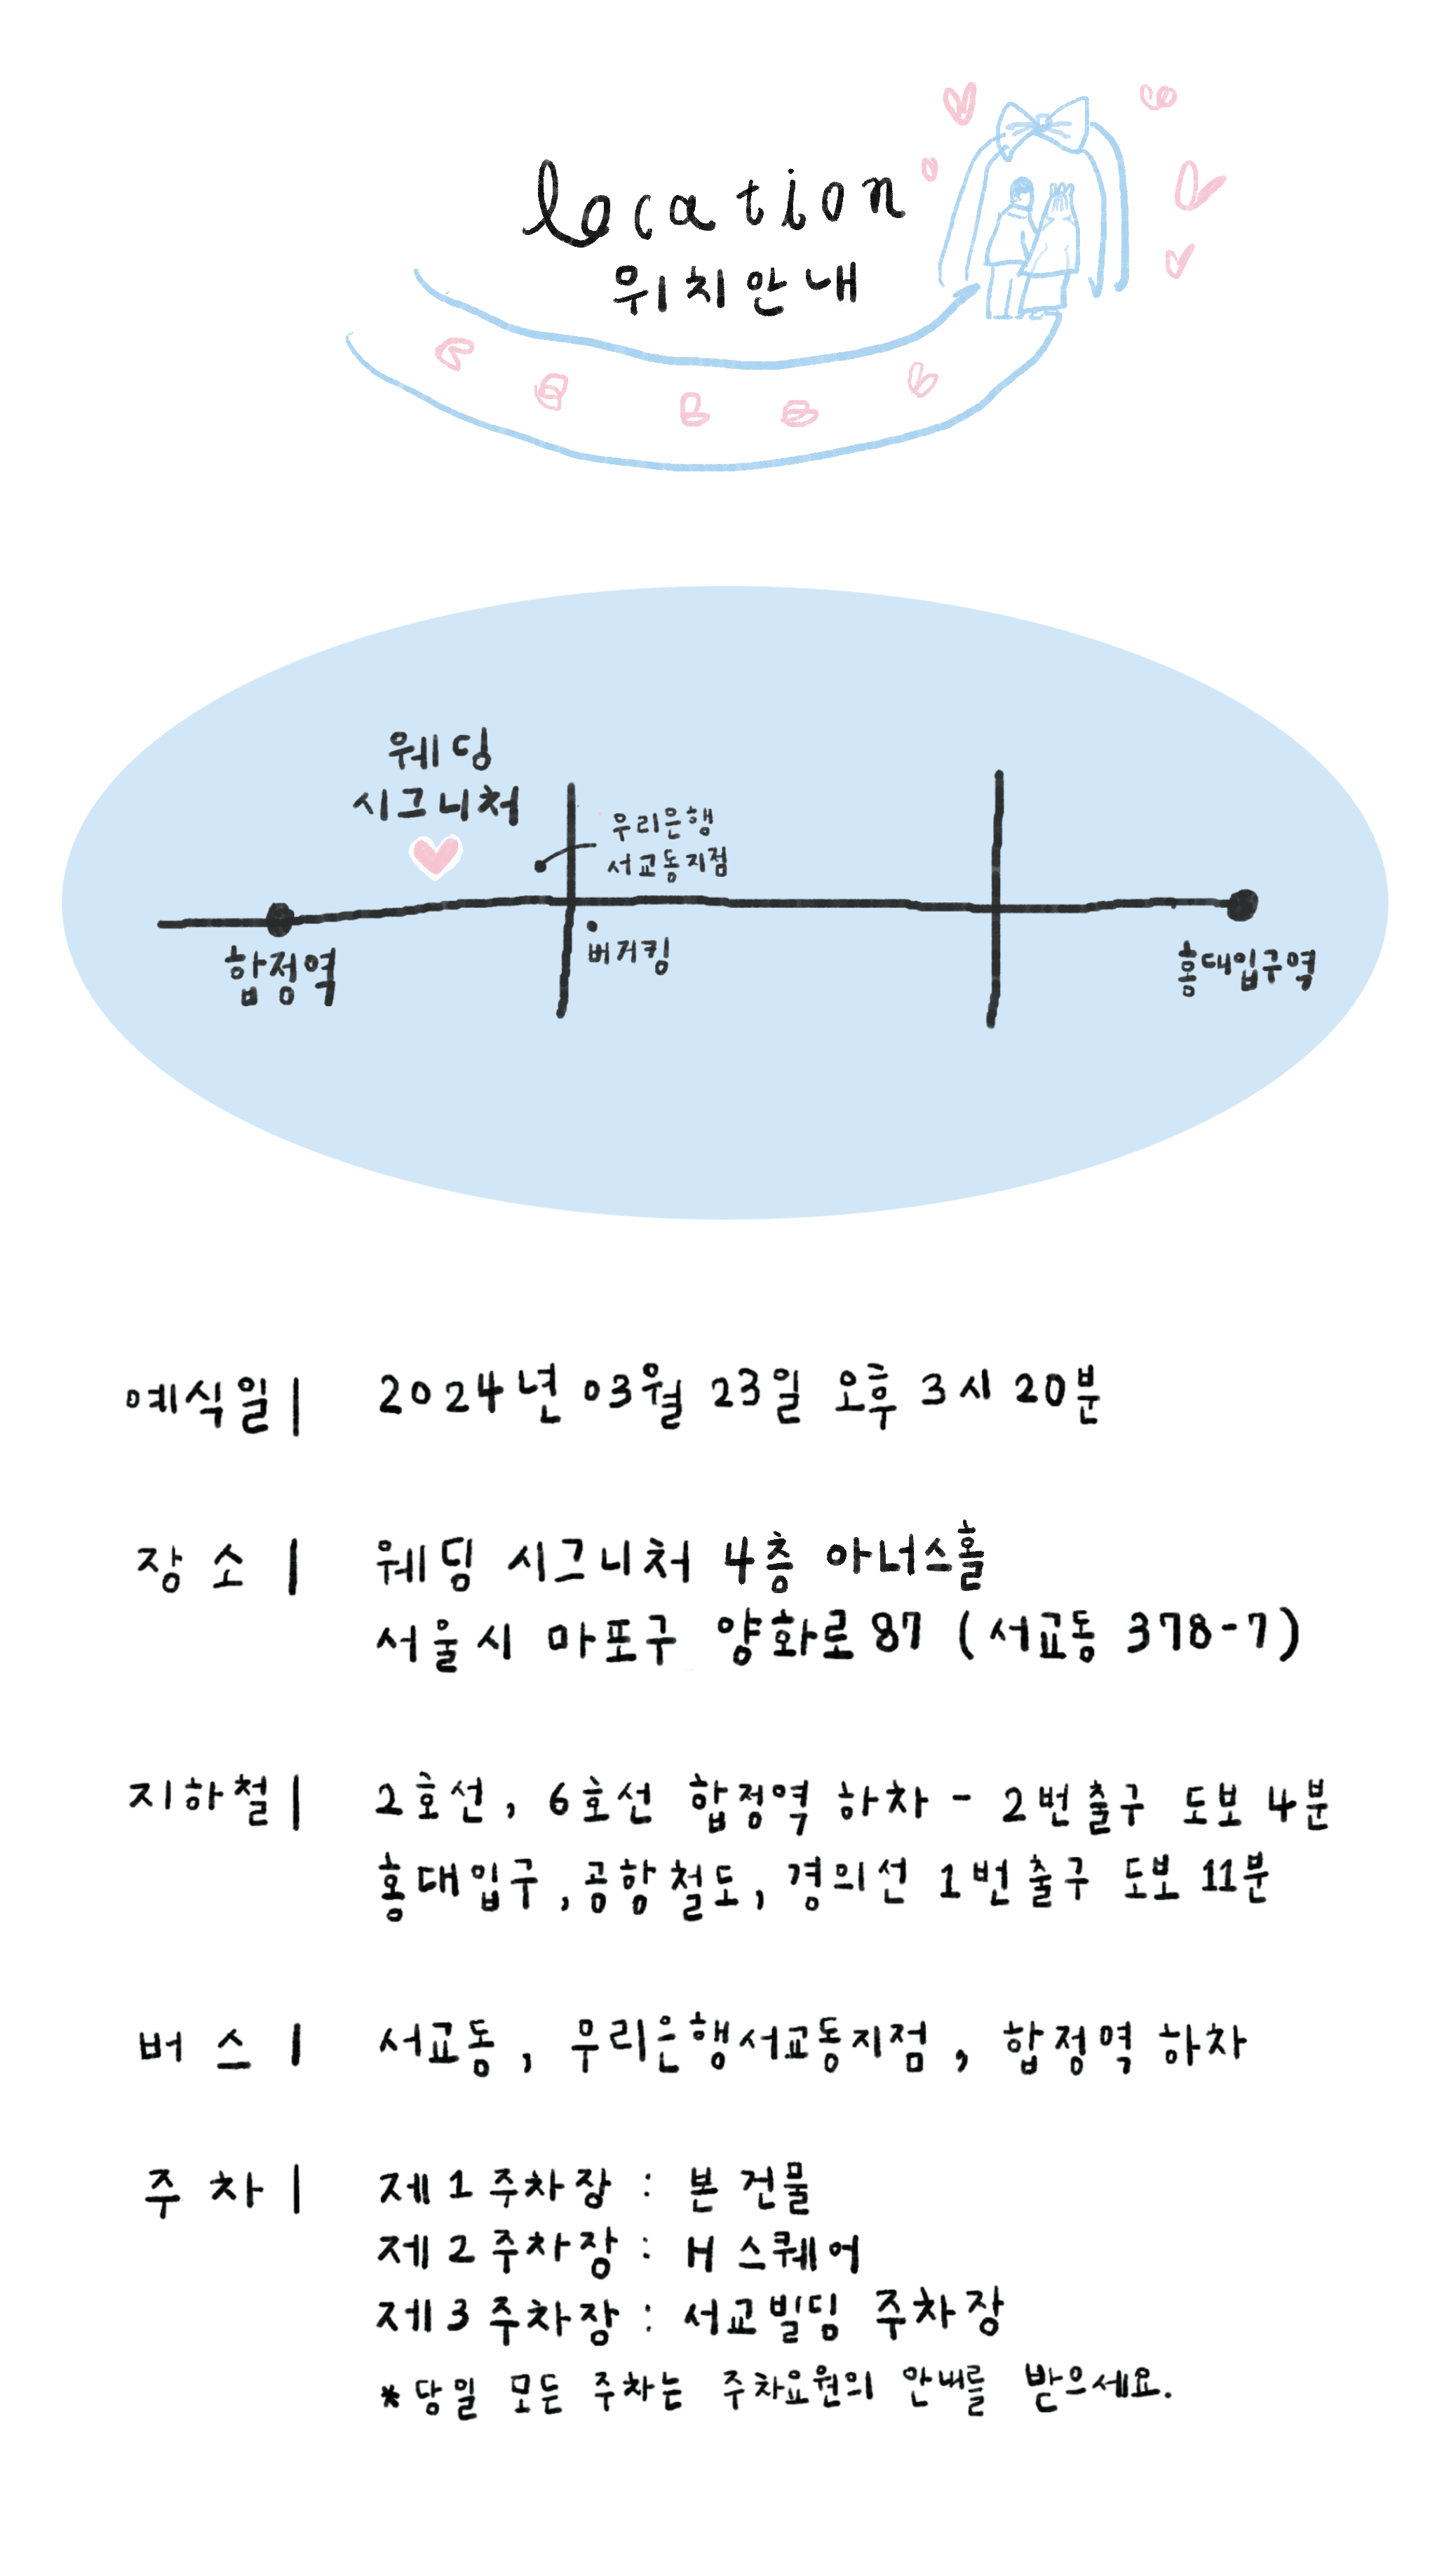 location
위치안내
웨딩
시그니처
우리은행
서교동지점
합정역
버거킹
홍대입구역
예식일| 2024년 03월 23일 오후 3시 20분
장소| 웨딩 시그니처 4층 아너스홀
서울시 마포구 양화로87 (서교동 378-7)
지하철| 2호선, 6호선 합정역 하차 - 2번출구 도보 4분
홍대입구, 공항철도, 경의선 1번출구 도보 11분
버스| 서교동, 우리은행서교동지점, 합정역 하차
주차| 제1주차장 : 본 건물
제2주차장 : H 스퀘어
제3주차장 : 서교빌딩 주차장
*당일 모든 주차는 주차요원의 안내를 받으세요.